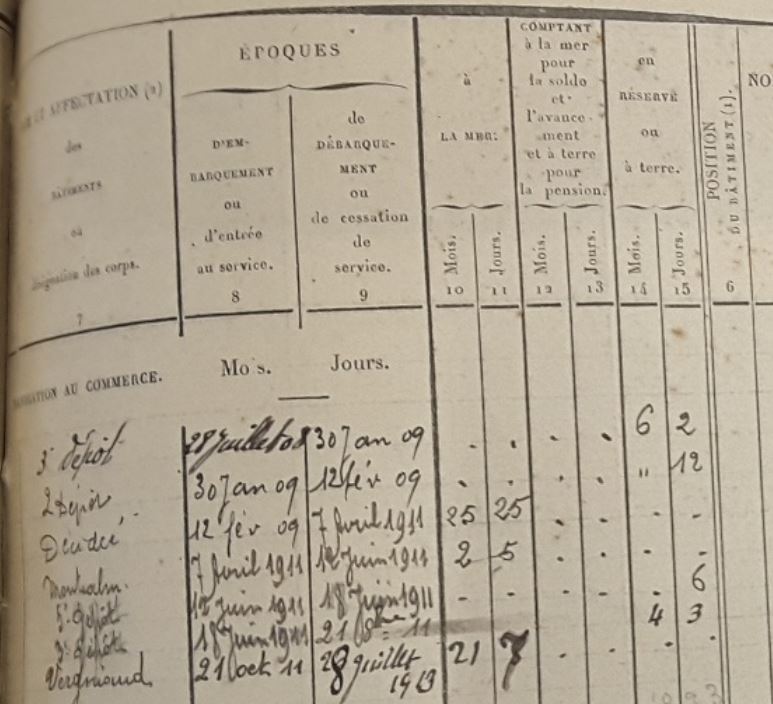 ÉPOQUES
ET AFFECTATION (2)
des
BÂTIMENTS
ou
désignation des corps.
7
D'EM-
BARQUEMENT
ou
d'entrée
au service.
8
de
DÉBARQUE-
MENT
ou
de cessation
de
service.
9
à
LA MER:
Mois.
10
Jours.
11
COMPTANT
à la mer
pour
la solde
et
l'avance-
ment
et à terre
pour
la pension.
Mois.
12
Jours.
13
en
RÉSERVE
ou
à terre.
Mois.
14
Jours.
15
POSITION
DU BÂTIMENT (1).
6
NO
NAVIGATION AU COMMERCE. Mois. Jours.
3e dépôt 28 Juillet 08 30 Jan 09 . . . . 6 2
2 Dépôt 30 Jan 09 12 fév 09 . . . . " 12
Décidée 12 fév 09 7 Avril 1911 25 25 . . - -
Montcalm. 7 Avril 1911 12 Juin 1911 2 5 . . - -
5e dépôt 12 Juin 1911 18 Juin 1911 - - . . - 6
3e dépôt 18 Juin 1911 21 8bre 11 4 3
Vergniaud 21 Oct 11 28 Juillet 1913 21 7 . . . .